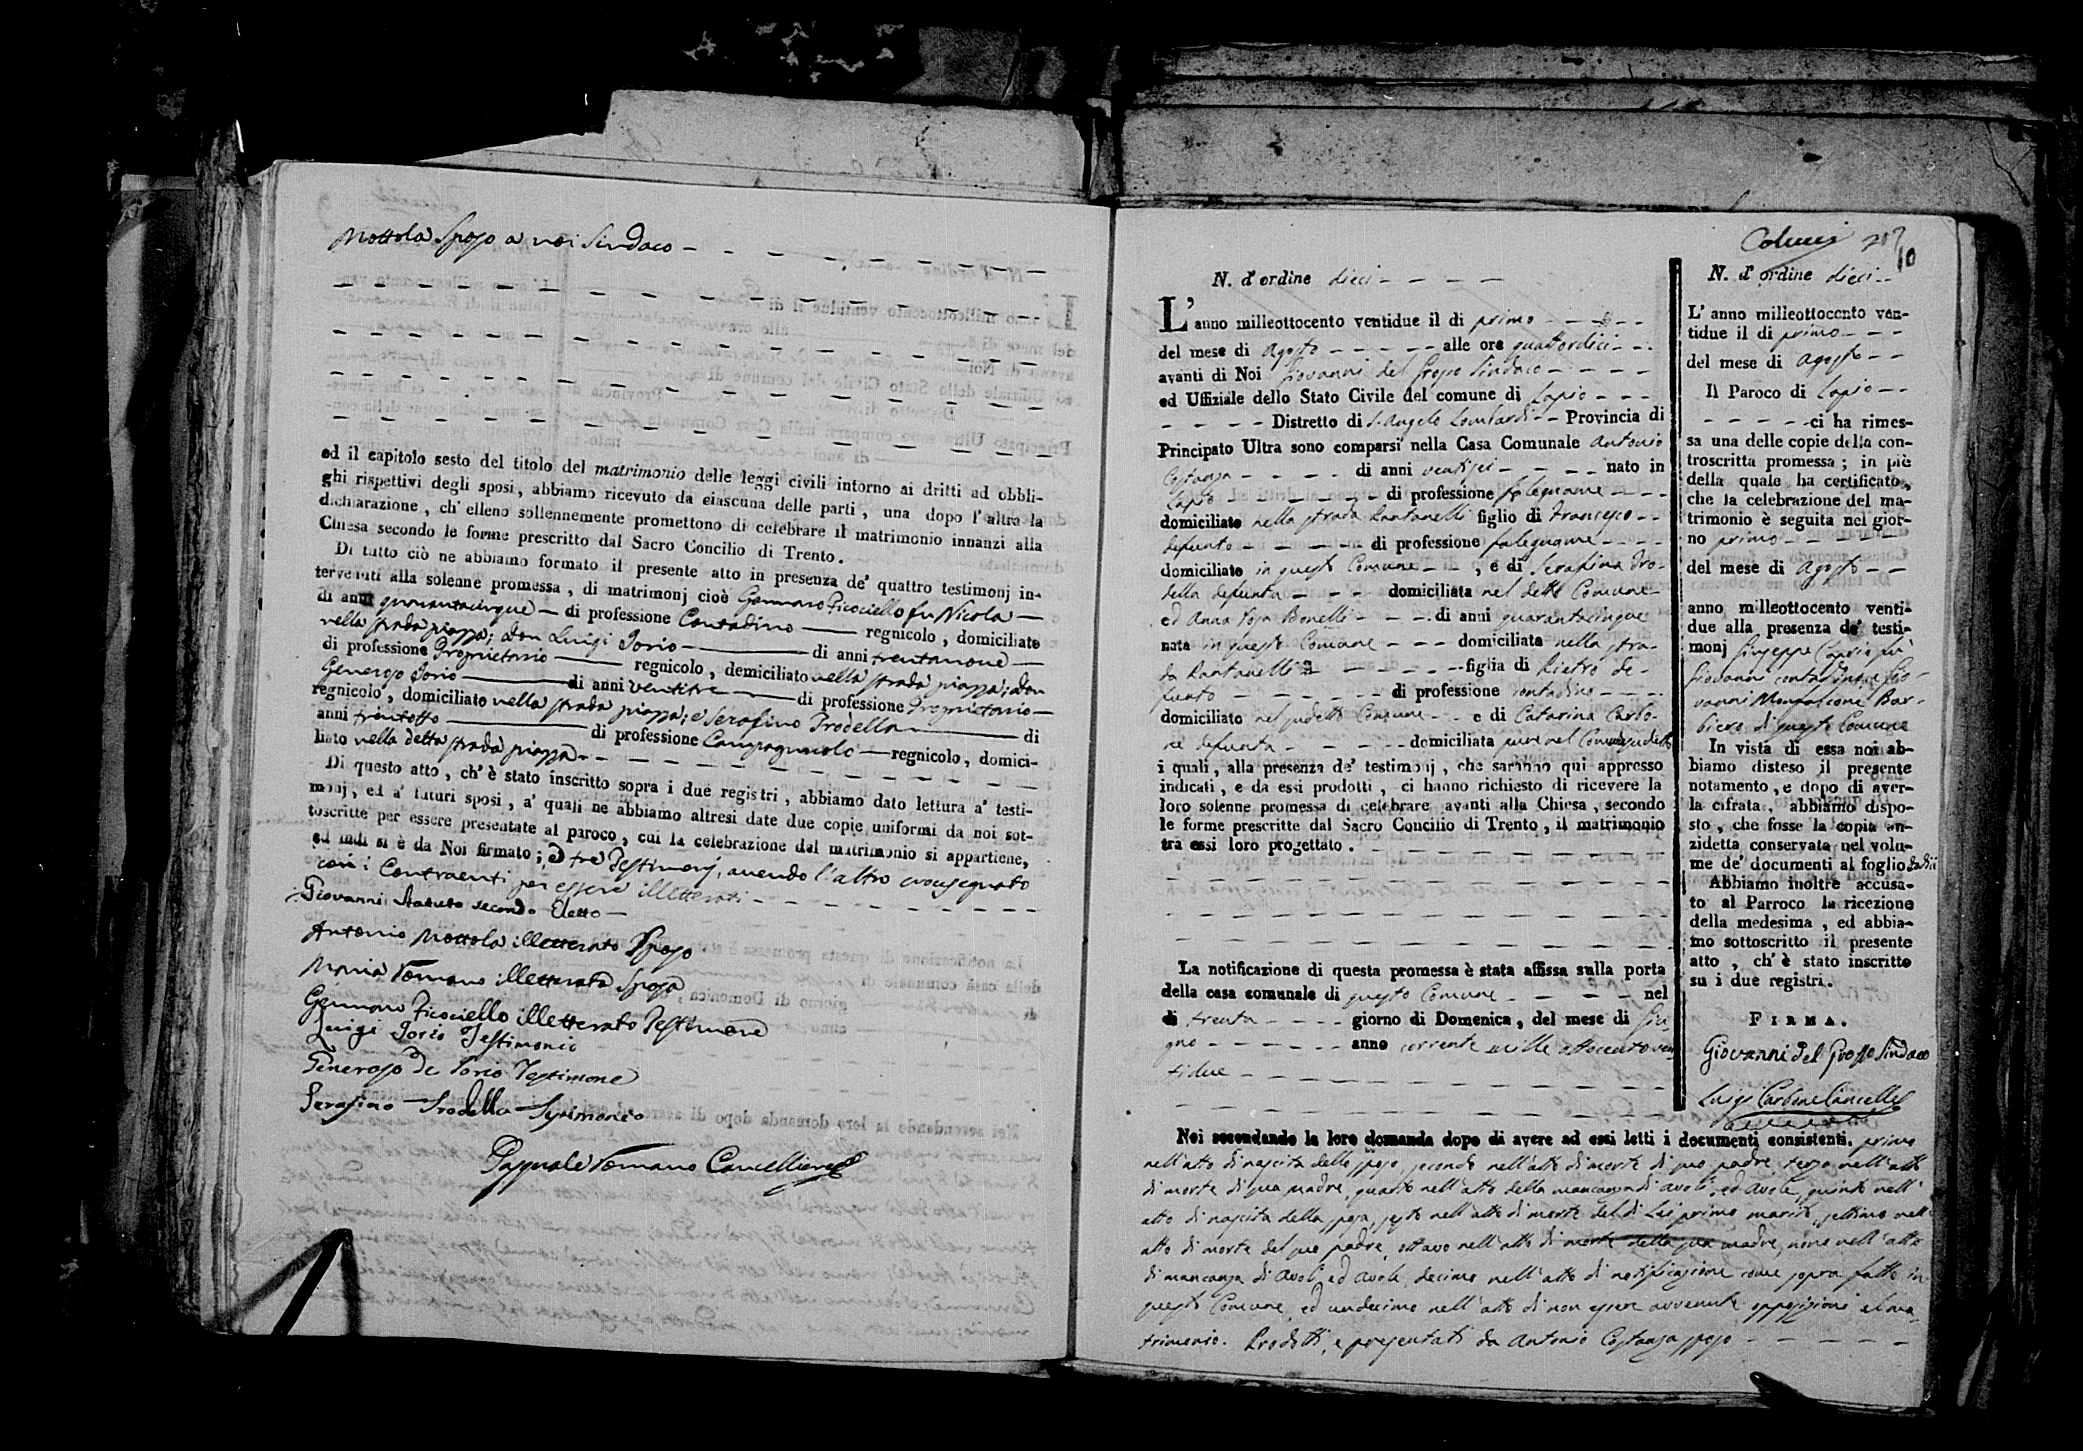 Mottola Sposo a noi Sindaco
ed il capitolo sesto del titolo del matrimonio delle leggi civili intorno ai dritti ad obbli-
ghi rispettivi degli sposi, abbiamo ricevuto da ciascuna delle parti, una dopo l'altra la
dichiarazione, ch' elleno sollennemente promettono di celebrare il matrimonio innanzi alla
Chiesa secondo le forme prescritto dal Sacro Concilio di Trento.
Di tutto ciò ne abbiamo formato il presente atto in presenza de' quattro testimonj in-
tervenuti alla solenne promessa, di matrimonj cioè Gennaro Picociello fu Nicola
di anni quarantacinque di professione Contadino regnicolo, domiciliato
nella strada piazza; Don Luigi Iorio di anni trentanove
di professione Proprietario regnicolo, domiciliato nella strada piazza; don
Generoso Iorio di anni ventitre di professione Proprietario
regnicolo, domiciliato nella strada piazza; e Serafino Trodella di
anni trentotto di professione Campagnuolo regnicolo, domici-
liato nella detta strada piazza
Di questo atto, ch' è stato inscritto sopra i due registri, abbiamo dato lettura a' testi-
monj, ed a' futuri sposi, a' quali ne abbiamo altresi date due copie uniformi da noi sot-
toscritte per essere presentate al paroco, cui la celebrazione del matrimonio si appartiene,
ed indi si è da Noi firmato; e tre Testimonj, avendo l'altro crocesegnato
con i Contraenti per essere illetterati
Giovanni Staruto secondo Eletto
Antonio Mottola illetterato Sposo
Maria Tomano illetterata Sposa
Gennaro Picociello illetterato Testimone
Luigi Iorio Testimonio
Generoso De Iorio Testimone
Serafino Trodella Testimonio
Pasquale Tomano Cancelliere
10
N. d'ordine dieci
L'anno milleottocento ventidue il di primo
del mese di Agosto alle ore quattordici
avanti di Noi Giovanni del Grosso Sindaco
ed Uffiziale dello Stato Civile del comune di Lapio
Distretto di S. Angelo Lombardi Provincia di
Principato Ultra sono comparsi nella Casa Comunale Antonio
Costanza di anni ventisei nato in
Lapio di professione falegname
domiciliato nella strada Pantanelli figlio di Francesco
defunto di professione falegname
domiciliato in questo Comune, e di Serafina Tro-
della defunta domiciliata nel detto Comune
ed Anna Rosa Bonelli di anni quarantacinque
nata in questo Comune domiciliata nella stra-
da Pantanelli figlia di Pietro de-
funto di professione contadino
domiciliato nel sudetto Comune e di Catarina Carbo-
ne defunta domiciliata pure nel Comune sudetto
i quali, alla presenza de' testimonj, che saranno qui appresso
indicati, e da essi prodotti, ci hanno richiesto di ricevere la
loro solenne promessa di celebrare avanti alla Chiesa, secondo
le forme prescritte dal Sacro Concilio di Trento, il matrimonio
tra essi loro progettato.
La notificazione di questa promessa è stata affissa sulla porta
della casa comunale di questo Comune nel
di trenta giorno di Domenica, del mese di Giu-
gno anno corrente mille ottocento ven-
tidue
N. d'ordine dieci
L'anno milleottocento ven-
tidue il di primo
del mese di Agosto
Il Paroco di Lapio
ci ha rimes-
sa una delle copie della con-
troscritta promessa; in piè
della quale ha certificato,
che la celebrazione del ma-
trimonio è seguita nel gior-
no primo
del mese di Agosto
anno milleottocento venti-
due alla presenza de' testi-
monj Giuseppe
Giovanni contadino, e Gio-
vanni Monfalcone Bar-
biere di questo Comune
In vista di essa noi ab-
biamo disteso il presente
notamento, e dopo di aver-
la cifrata, abbiamo dispo-
sto, che fosse la copia an-
zidetta conservata nel volu-
me de' documenti al foglio
Abbiamo inoltre accusa-
to al Parroco la ricezione
della medesima, ed abbia-
mo sottoscritto il presente
atto, ch' è stato inscritto
su i due registri.
FIRMA.
Giovanni del Grosso Sindaco
Luigi Carbone Cancelle
Noi secondando la loro domanda dopo di avere ad essi letti i documenti consistenti, primo
nell'atto di nascita dello sposo, secondo nell'atto di morte di suo padre, terzo nell'atto
di morte di sua madre, quarto nell'atto della mancanza di avoli, ed avole, quinto nell'
atto di nascita della sposa, sesto nell'atto di morte del di Lei primo marito, settimo nell'
atto di morte del suo padre, ottavo nell'atto di morte della sua madre, nono nell'atto
di mancanza di avoli, ed avole, decimo nell'atto di notificazione come sopra fatto in
questo Comune, ed undecimo nell'atto di non essere avvenute opposizioni al ma-
trimonio. Prodotti, e presentati da Antonio Costanza sposo